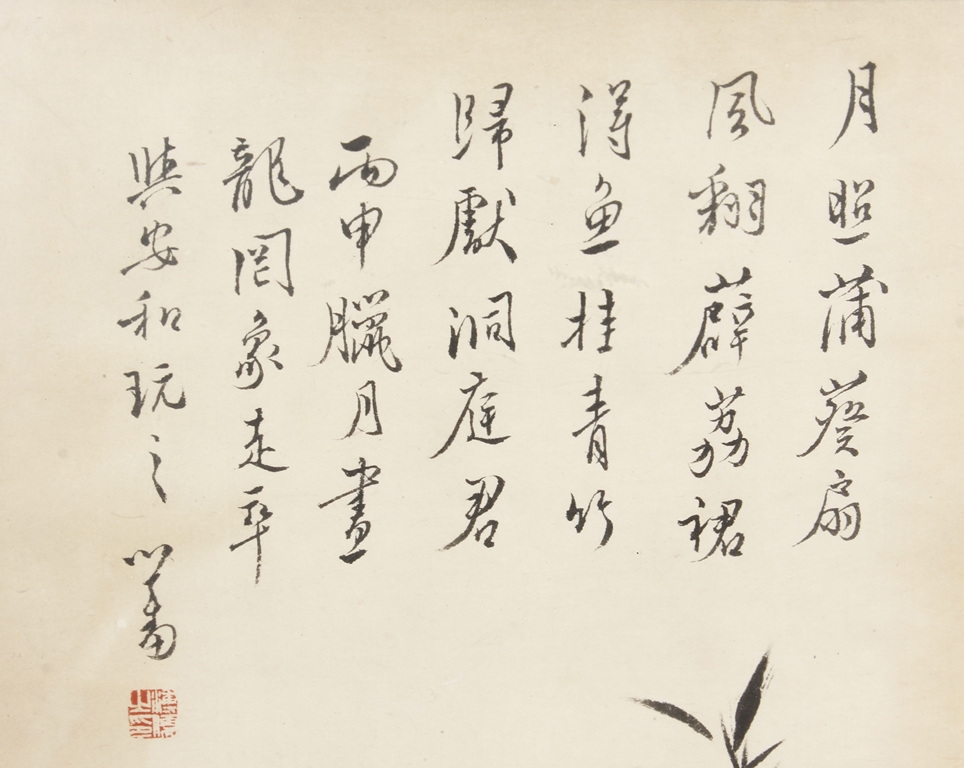 月照蒲葵扇
風翻薜荔裙
得魚挂青竹
歸獻洞庭君
丙申臘月畫
龍罔象走卒
與安和玩之 心畬